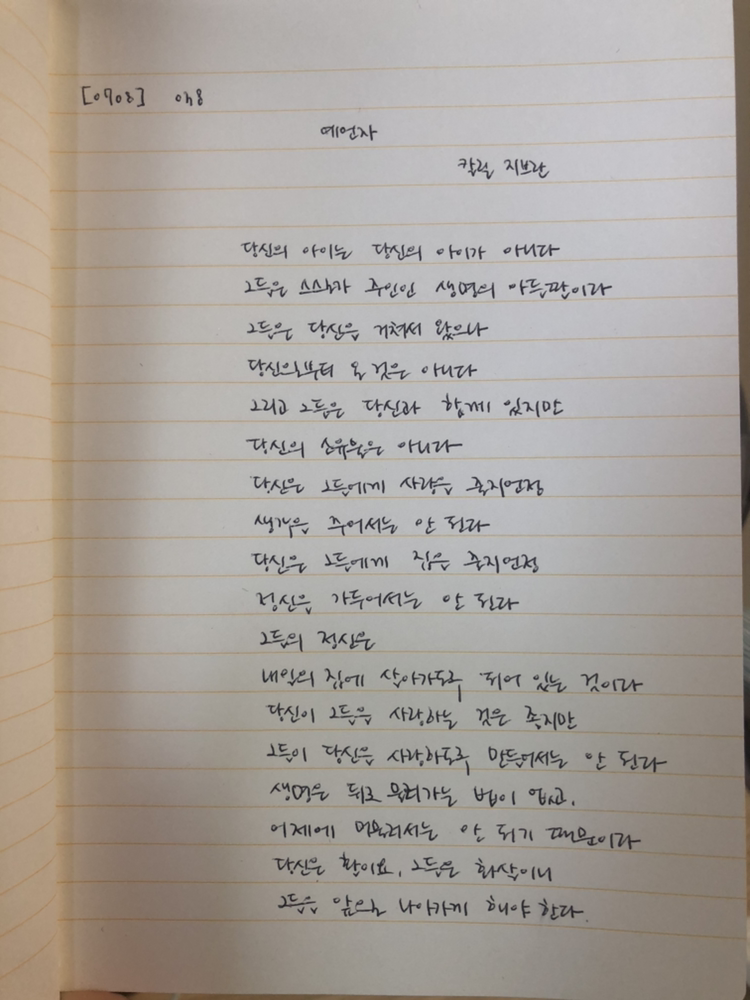 [0708] 048
예언자
칼릴 지브란
당신의 아이는 당신의 아이가 아니다
그들은 스스로가 주인인 생명의 아들딸이라
그들은 당신을 거쳐서 왔으나
당신으로부터 온 것은 아니다
그리고 그들은 당신과 함께 있지만
당신의 소유물은 아니라
당신은 그들에게 사랑을 줄지언정
생각을 주어서는 안 된라
당신은 그들에게 집은 줄지언정
정신을 가두어서는 안 된라
그들의 정신은
내일의 집에 살아가도록 되어 있는 것이라
당신이 그들을 사랑하는 것은 좋지만
그들이 당신을 사랑하도록 만들어서는 안 된라
생명은 뒤로 물러가는 법이 없고,
어제에 머물러서는 안 되기 때문이라
당신은 활이요, 그들은 화살이니
그들을 앞으로 나아가게 해야 한다.